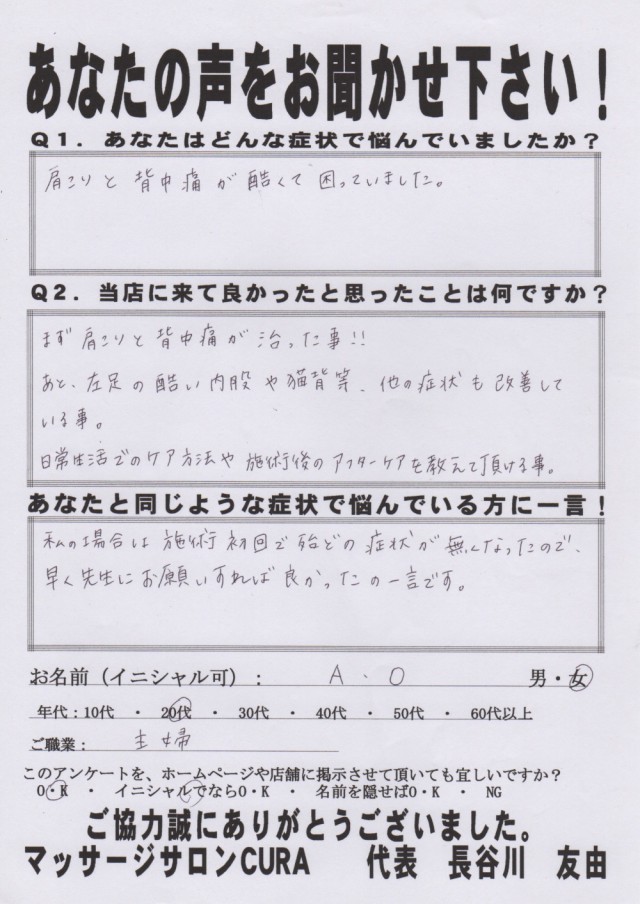 あなたの声をお聞かせ下さい!
Q1.あなたはどんな症状で悩んでいましたか?
肩こりと背中痛が酷くて困っていました。
Q2.当店に来て良かったと思ったことは何ですか?
まず肩こりと背中痛が治った事!!
あと、左足の酷い内股や猫背等、他の症状も改善して
いる事。
日常生活でのケア方法や施術後のアフターケアを教えて頂ける事。
あなたと同じような症状で悩んでいる方に一言!
私の場合は施術初回で殆どの症状が無くなったので、
早く先生にお願いすれば良かったの一言です。
お名前(イニシャル可): A.O 男・女
年代:10代 ・ 20代 ・ 30代 ・ 40代 ・ 50代 ・ 60代以上
ご職業: 主婦
このアンケートを、ホームページや店舗に掲示させて頂いても宜しいですか?
O・K ・ イニシャルでならO・K ・ 名前を隠せばO・K ・ NG
ご協力誠にありがとうございました。
マッサージサロンCURA 代表 長谷川 友由